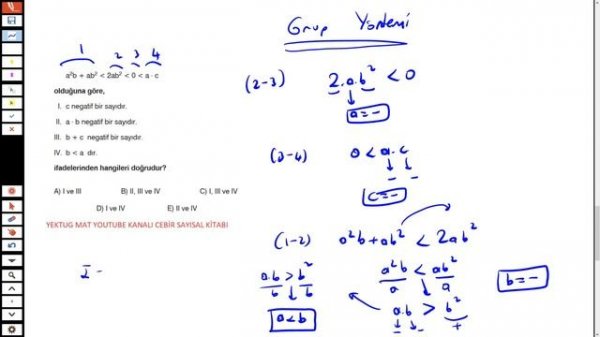 Grup Yöntemi
1 2 3 4
a²b + ab² < 2ab² < 0 < a · c
olduğuna göre,
I. c negatif bir sayıdır.
II. a · b negatif bir sayıdır.
III. b + c negatif bir sayıdır.
IV. b < a dır.
ifadelerinden hangileri doğrudur?
A) I ve III B) II, III ve IV C) I, III ve IV
D) I ve IV E) II ve IV
YEKTUG MAT YOUTUBE KANALI CEBİR SAYISAL KİTABI
I -
(2-3) 2.a.b² < 0
a = -
(3-4) 0 < a.c
- -
c = -
(1-2) a²b + ab² < 2ab²
a²b/a < ab²/a
b = -
a.b > b²
- - +
a.b/b > b²/b
a < b